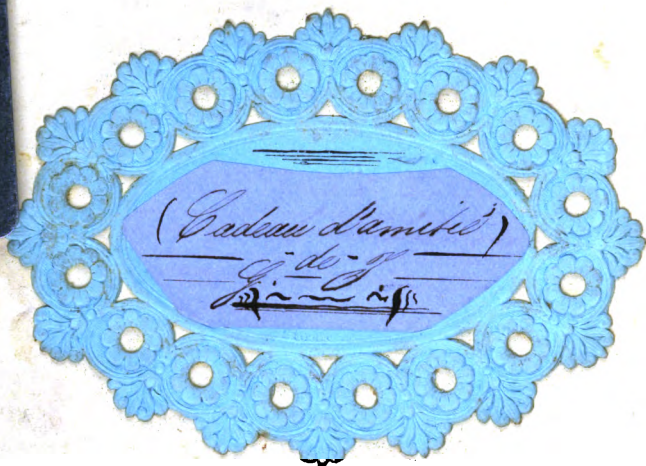 (Cadeau d'amitié)
- de -